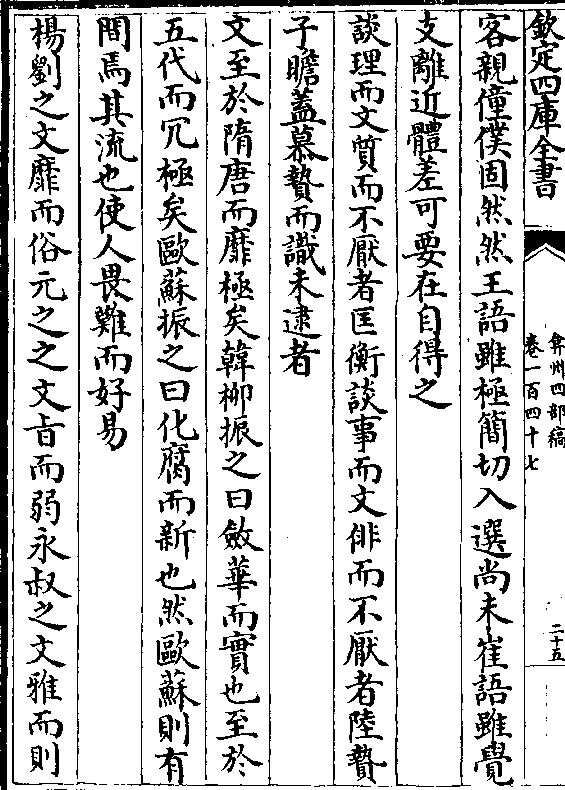 欽定四庫全書
弇州四部稿
卷一百四十七
二十五
客親僮僕固然然王語雖極簡切入選尚未崔語雖覺
支離近體差可要在自得之
談理而文質而不厭者匡衡談事而文俳而不厭者陸贄
子瞻蓋慕贄而識未逮者
文至於隋唐而靡極矣韓柳振之曰斂華而實也至於
五代而冗極矣歐蘇振之曰化腐而新也然歐蘇則有
間焉其流也使人畏難而好易
楊劉之文靡而俗元之之文旨而弱永叔之文雅而則